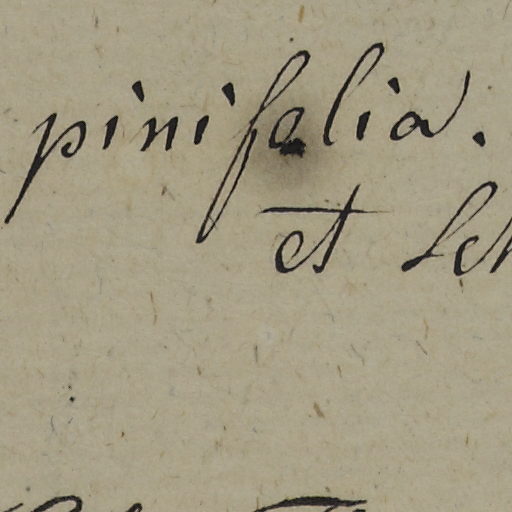 pinifolia.
et Sch